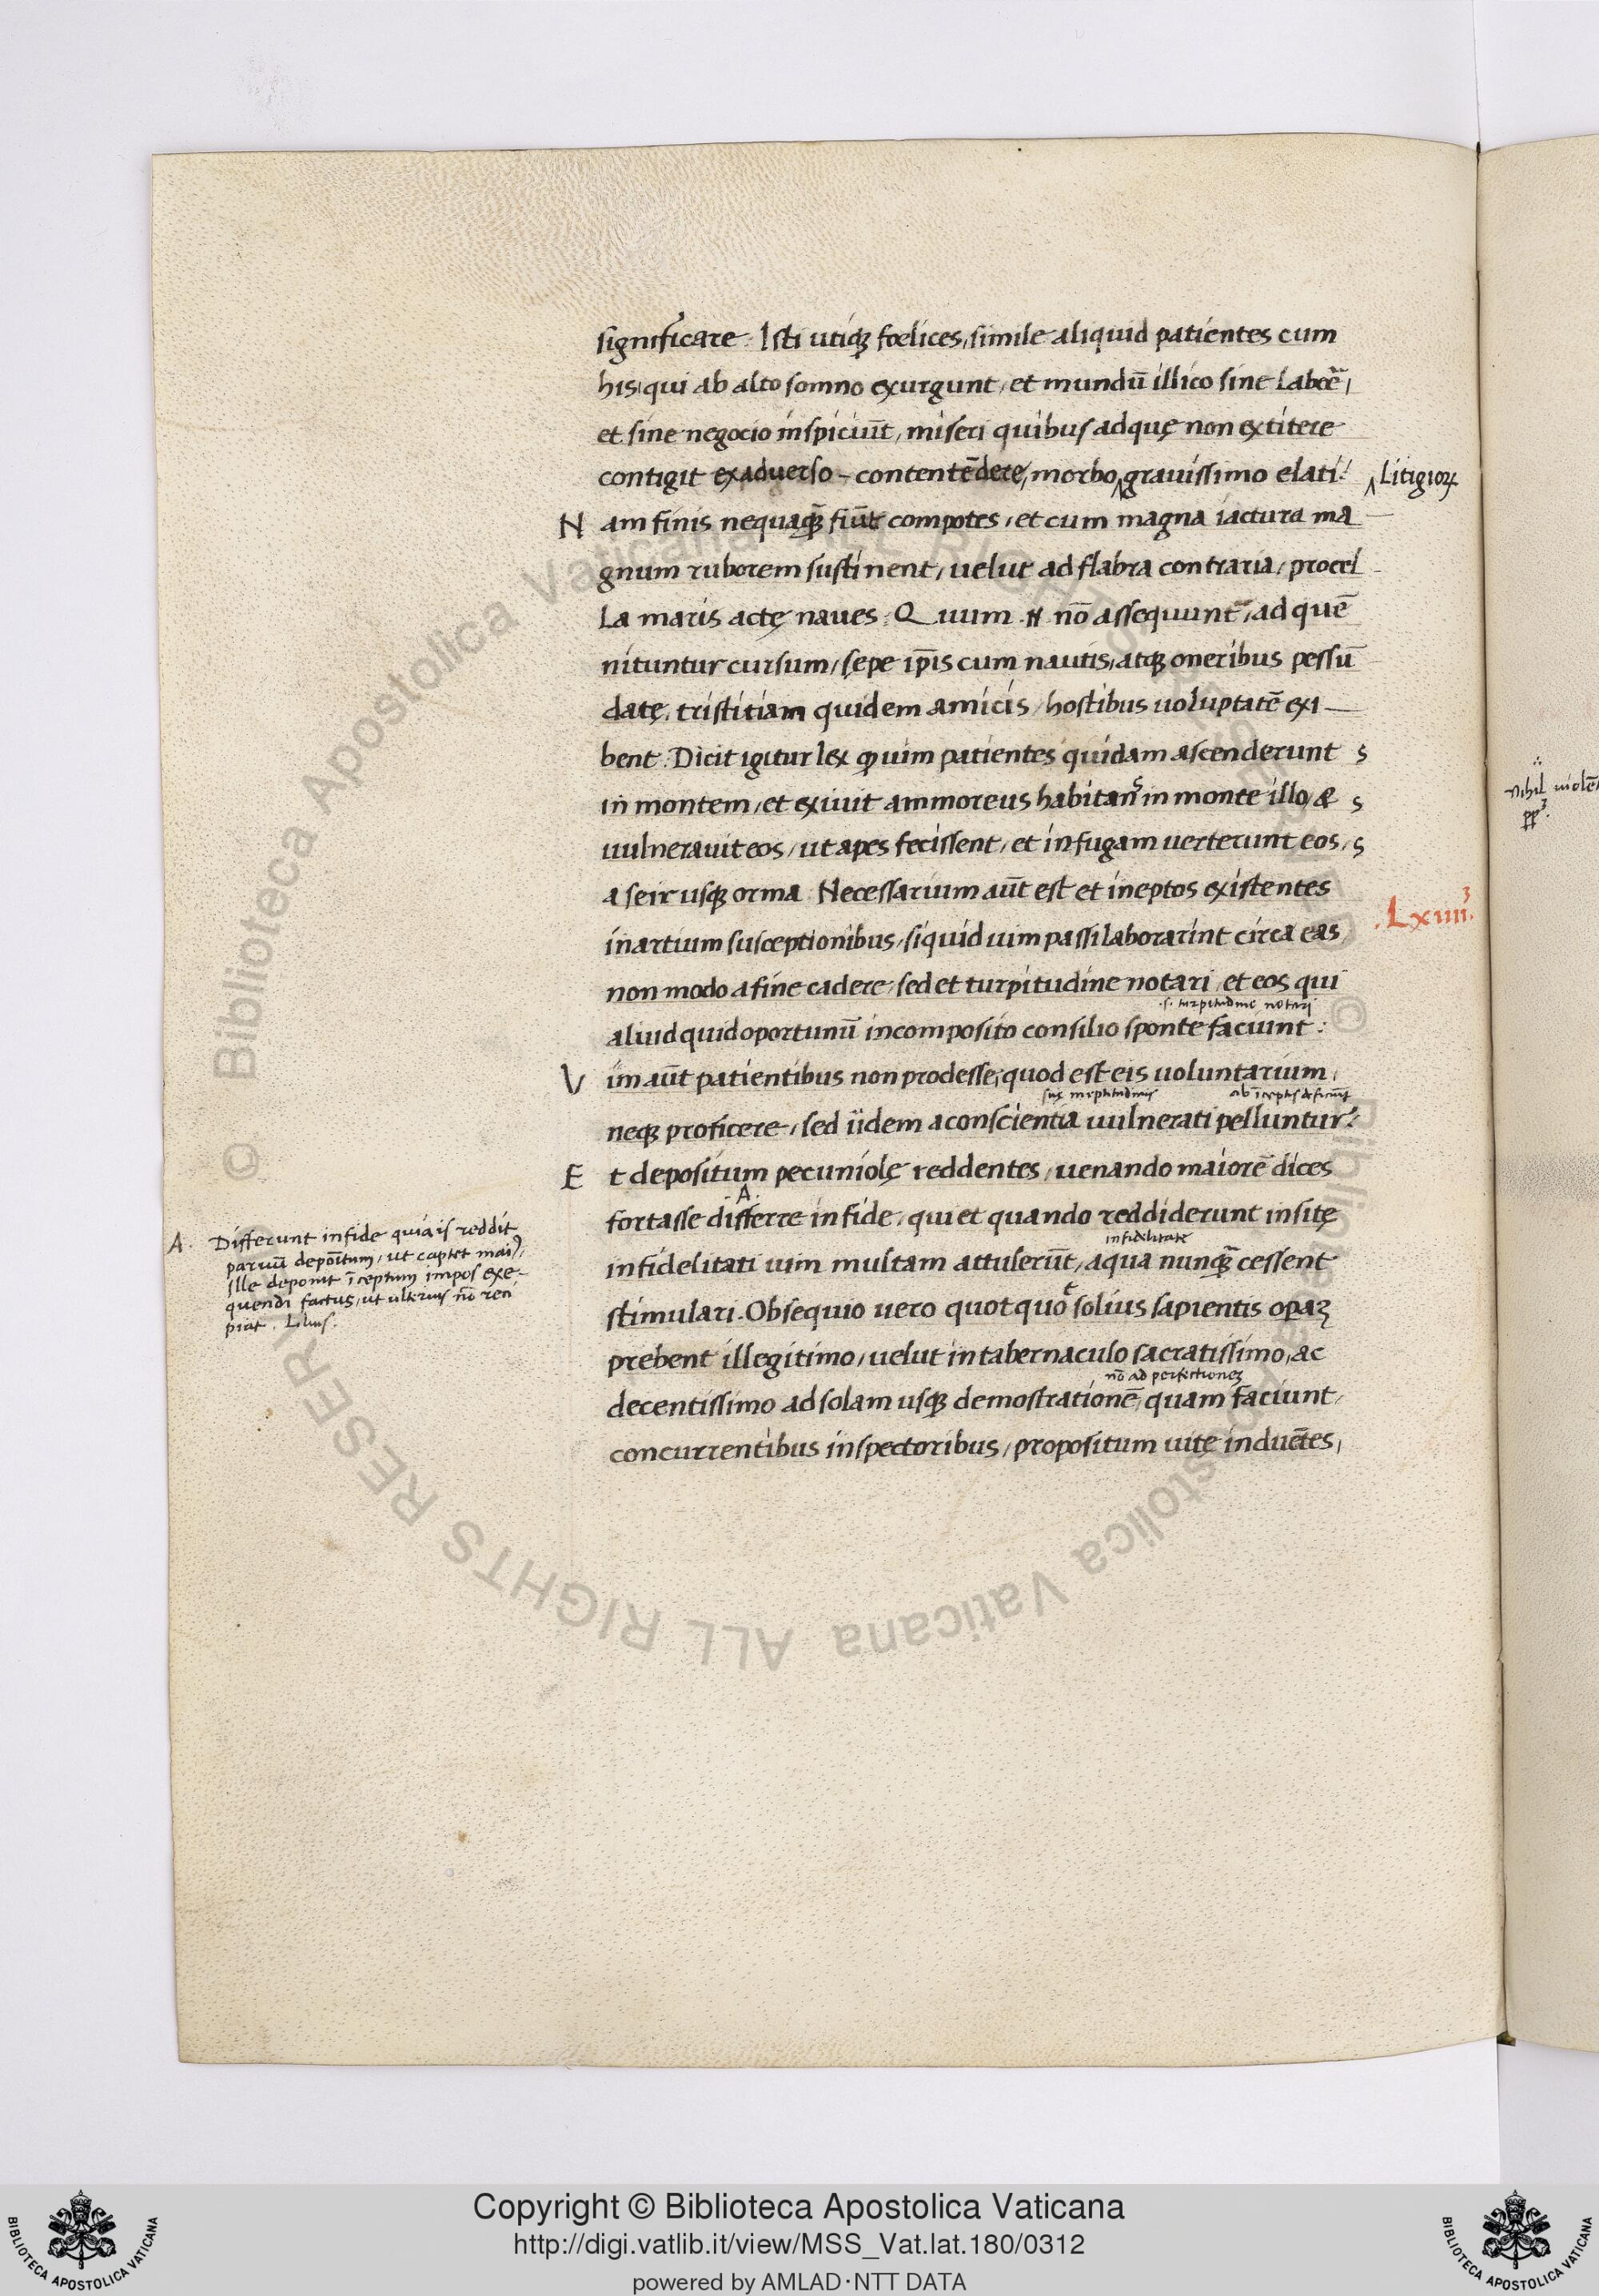 significare. Isti utiq; fœlices, simile aliquid patientes cum
his, qui ab alto somno exurgunt, et mundū illico sine labore,
et sine negocio inspiciūt, miseri quibus ad quę non extitere
contigit ex aduerso contentēdere, morbo ‸ grauissimo elati:
‸ Litigioꝝ
N am finis nequaq̄ fiūt compotes, et cum magna iactura ma
gnum ruborem sustinent, uelut ad flabra contraria, procel
la maris actę naues. Quum .n. nō assequunt̄, ad quē
nituntur cursum, sępe ip̄is cum nautis, atq; oneribus pessū
datę, tristitiam quidem amicis, hostibus uoluptatē exi
bent. Dicit igitur lex ꝙ uim patientes quidam ascenderunt
in montem, et exiuit ammoreus habitans in monte illo, &
uulnerauit eos, ut apes fecissent, et in fugam uerterunt eos,
a seir usq; orma. Necessarium aūt est et ineptos existentes
.Lxiiii.
in artium susceptionibus, siquid uim passi laborarint circa eas
non modo a fine cadere, sed et turpitudine notari, et eos qui
.s. turpitudine notari
aliud quid oportunū incomposito consilio sponte faciunt:
V im aūt patientibus non prodesse, quod est eis uoluntarium,
suę ineptitudinis
ab īceptis deficiūt
neq; proficere, sed iidem a conscientia uulnerati pelluntur:
E t depositum pecuniolę reddentes, uenando maiorē dices
.A.
fortasse differre in fide, qui et quando reddiderunt insitę
infidelitatē
infidelitati uim multam attulerūt, a qua nunq̄ cessent
stimulari. Obsequio uero quotquot solius sapientis opaꝫ
prebent illegitimo, uelut in tabernaculo sacratissimo, ac
nō ad perfectioneꝫ
decentissimo ad solam usq; demostrationē, quam faciunt,
concurrentibus inspectoribus, propositum uitę induētes,
A. Differunt in fide quia is reddit
paruū depoītum, ut captet mai9,
ille deponit īceptum impos exe-
quendi factus, ut ulterius nō reci
piat. Lilius.
nihil
Copyright © Biblioteca Apostolica Vaticana
http://digi.vatlib.it/view/MSS_Vat.lat.180/0312
powered by AMLAD·NTT DATA
BIBLIOTECA APOSTOLICA VATICANA
BIBLIOTECA APOSTOLICA VATICANA
© Biblioteca Apostolica Vaticana ALL RIGHTS RESERVED